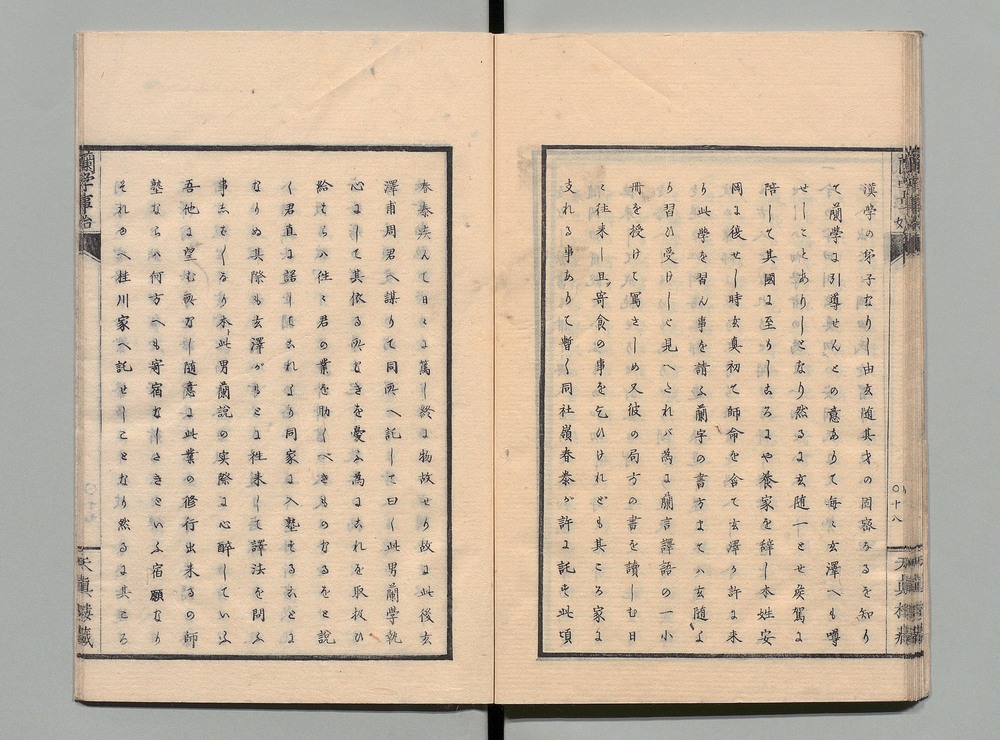 漢学の弟子なりし由玄随其才の固密なるを知り
て蘭学に引導せんとの意ありて毎々玄澤へも噂
せしことありしとなり然るに玄随一とせ矦駕に
陪して其國に至りし志ろにや養家を辞し本姓安
岡に後せし時玄真初て師命を含て玄澤が許に来
り此学を習ん事を請ふ蘭字の書方までハ玄随よ
り習ひ受けしと見へされバ為に蘭言譯語の一小
冊を授けて写さしめ又彼の局方の書を讀しむ日
々往来し且ツ寄食の事を乞ひけれども其ころ家に
支れる事ありて暫く同社嶺春泰が許に託す此頃
春泰疾んて日々に篤し終に物故せり故に此後玄
澤甫周君へ謀りて同所へ託して曰く此男蘭学執
心にして其依る所なきを憂ふ為に志れを取扱ひ
給ハらハ往々君の業を助くべきものなるをと説
く君直に諾し
それより同家に入塾せることに
なりぬ其際も玄澤がもとに往来して譯法を問ふ
事志バ〳〵なり本ト此男蘭説の実際に心酔していふ
吾他に望む所なし随意に此業の修行出来るの師
塾ならハ何方へも寄宿なしたきといふ宿願なり
それ由へ桂川家へ託せしことなり然るに其ころ
蘭学事始
○十八
天真樓蔵
蘭学事始
天真樓蔵